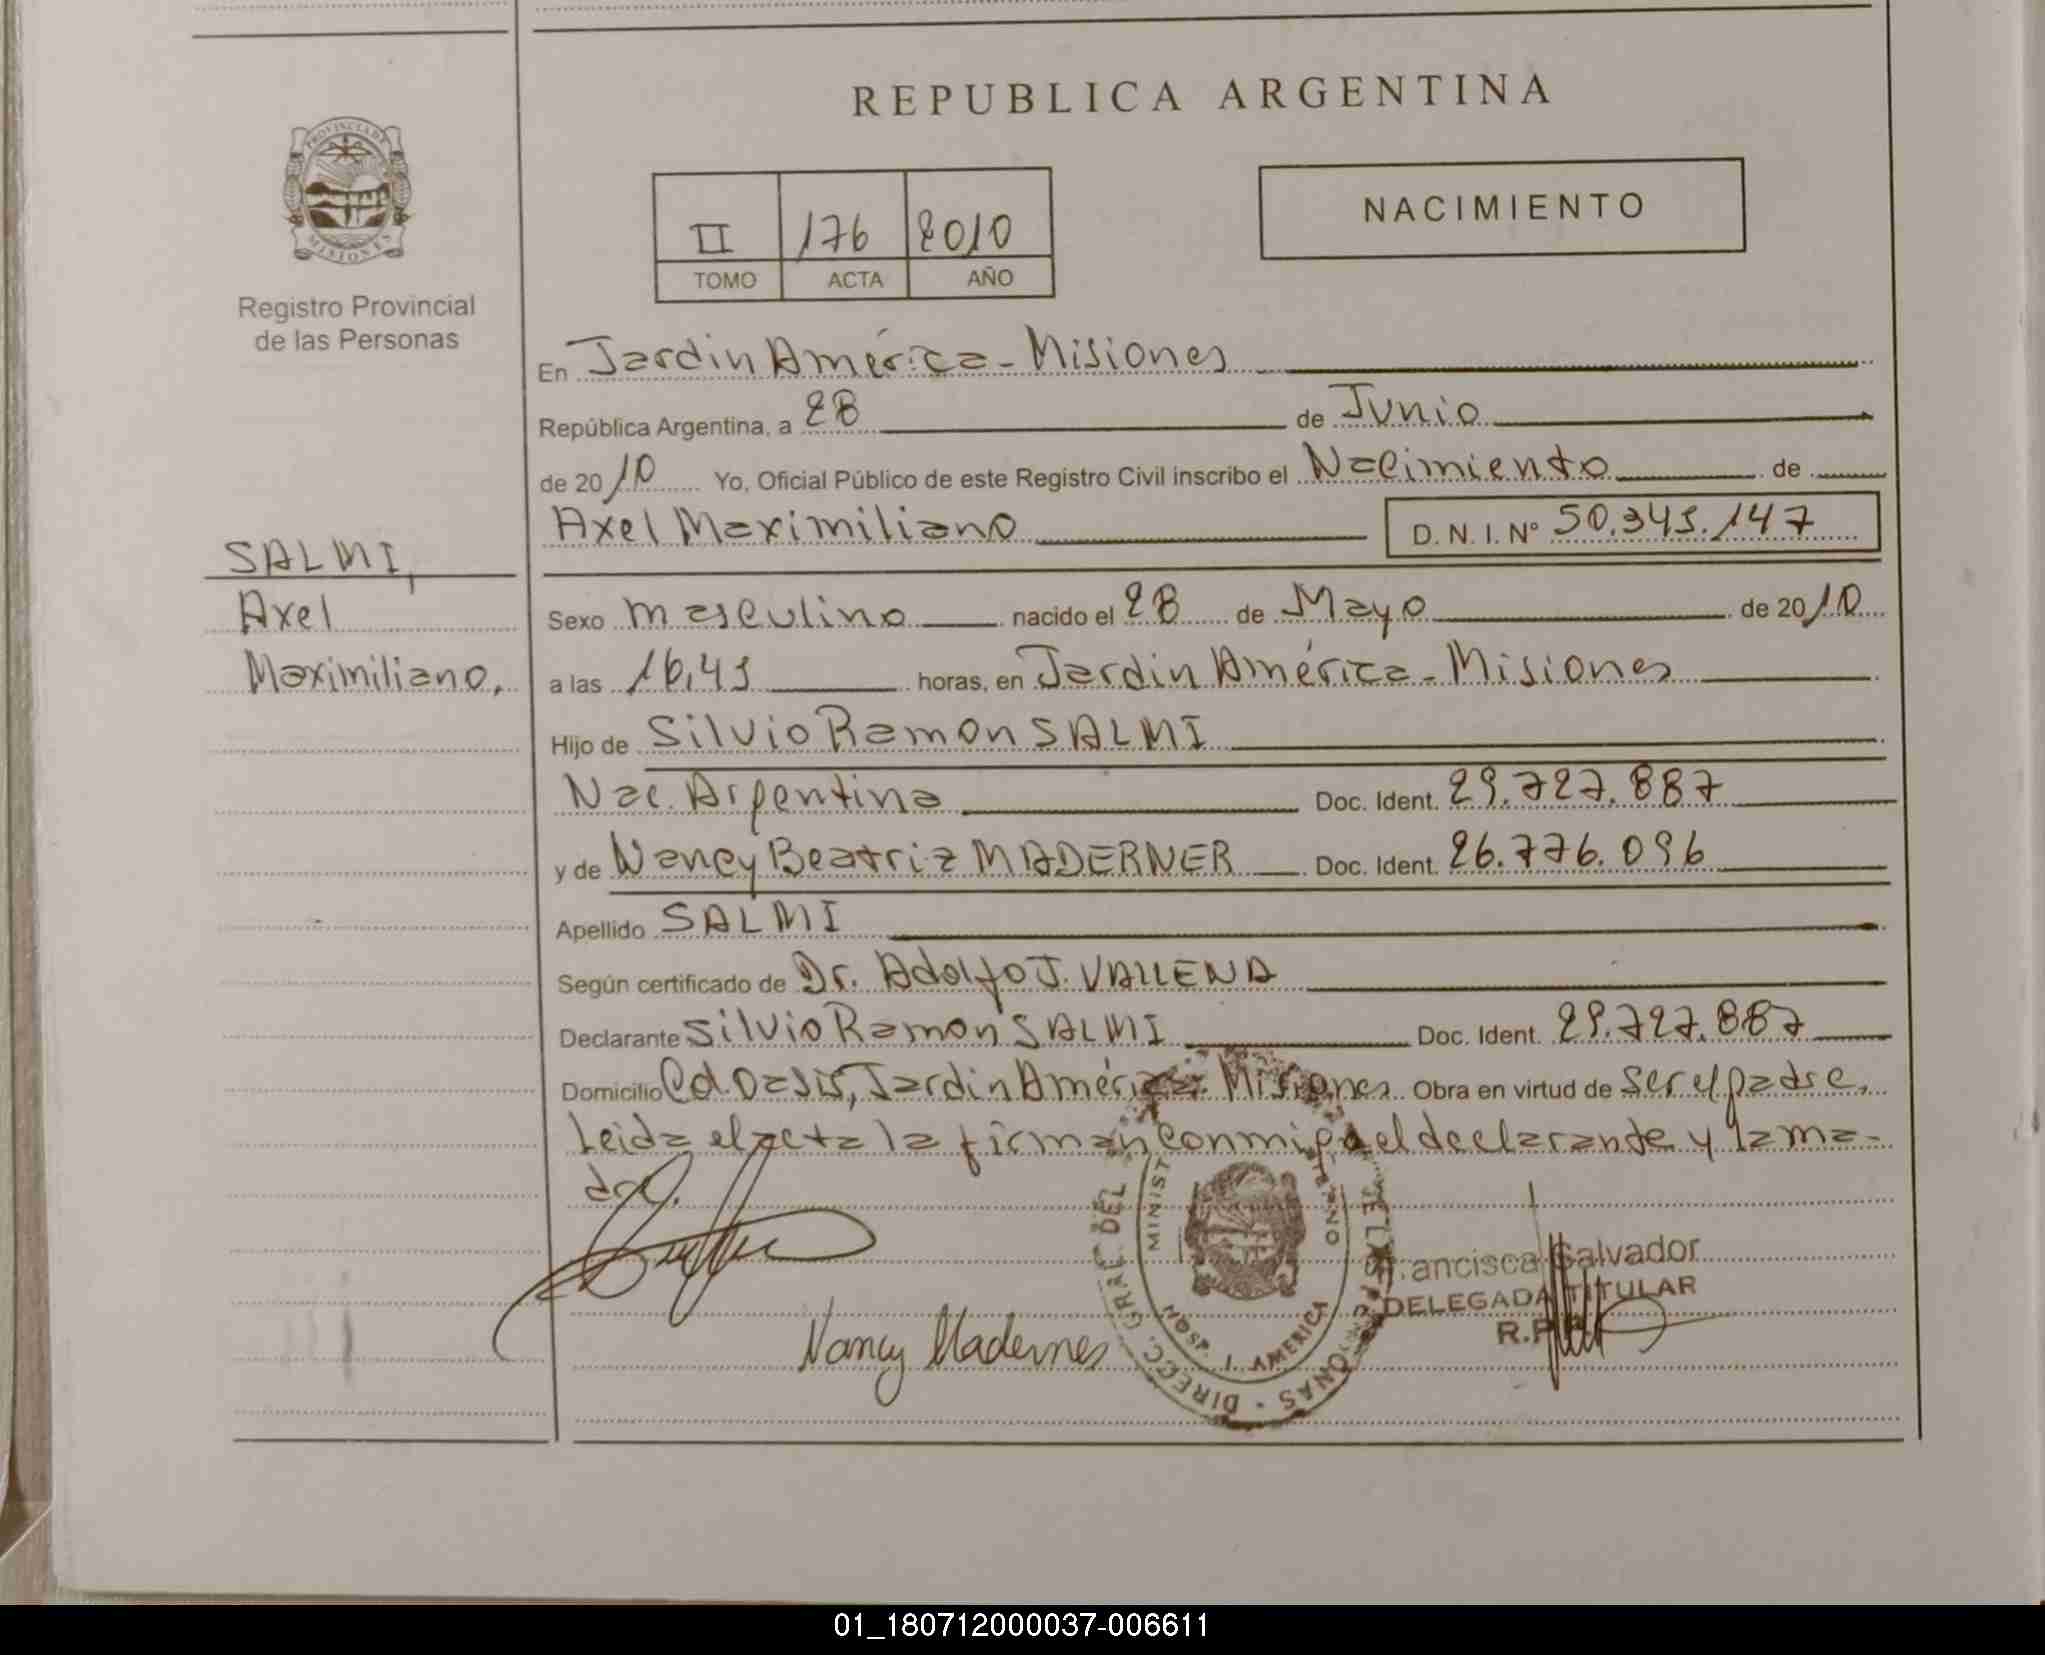 REPUBLICA ARGENTINA
PROVINCIA DE
MISIONES
Registro Provincial
de las Personas
II 176 2010
TOMO ACTA AÑO
NACIMIENTO
En Jardin América - Misiones
República Argentina, a 28 de Junio
de 2010 Yo, Oficial Público de este Registro Civil inscribo el Nacimiento de
Axel Maximiliano D. N. I. Nº 50.345.147
SALMI,
Axel
Maximiliano,
Sexo masculino nacido el 28 de Mayo de 2010
a las 16,45 horas, en Jardin América - Misiones
Hijo de Silvio Ramon SALMI
Nac. Argentina Doc. Ident. 29.727.887
y de Nancy Beatriz MADERNER Doc. Ident. 26.776.096
Apellido SALMI
Según certificado de Dr. Adolfo J. VALLENA
Declarante Silvio Ramon SALMI Doc. Ident. 29.727.887
Domicilio Cd. Oasis, Jardin América - Misiones. Obra en virtud de ser el padre.
Leida el acta la firman conmigo el declarante y la ma-
dre.
DIRECC. GRAL. DEL PERSONAS
MINIST GOBIERNO
HOSP. J. AMERICA
Francisca Salvador
DELEGADA TITULAR
Nancy Maderner
01_180712000037-006611